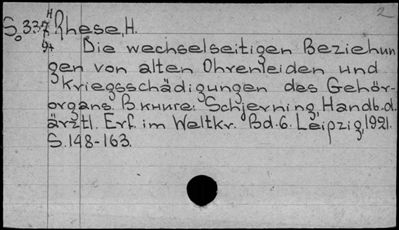 2
S. 337. Rhese, H.
Die wechselseitigen Beziehun
gen von alten Ohrenleiden und
Kriegsschädigungen des Gehör-
organs. В книге: Schjerning, Handb. d.
ärztl. Erf. im Weltkr. Bd. 6. Leipzig, 1921.
S. 148-163.